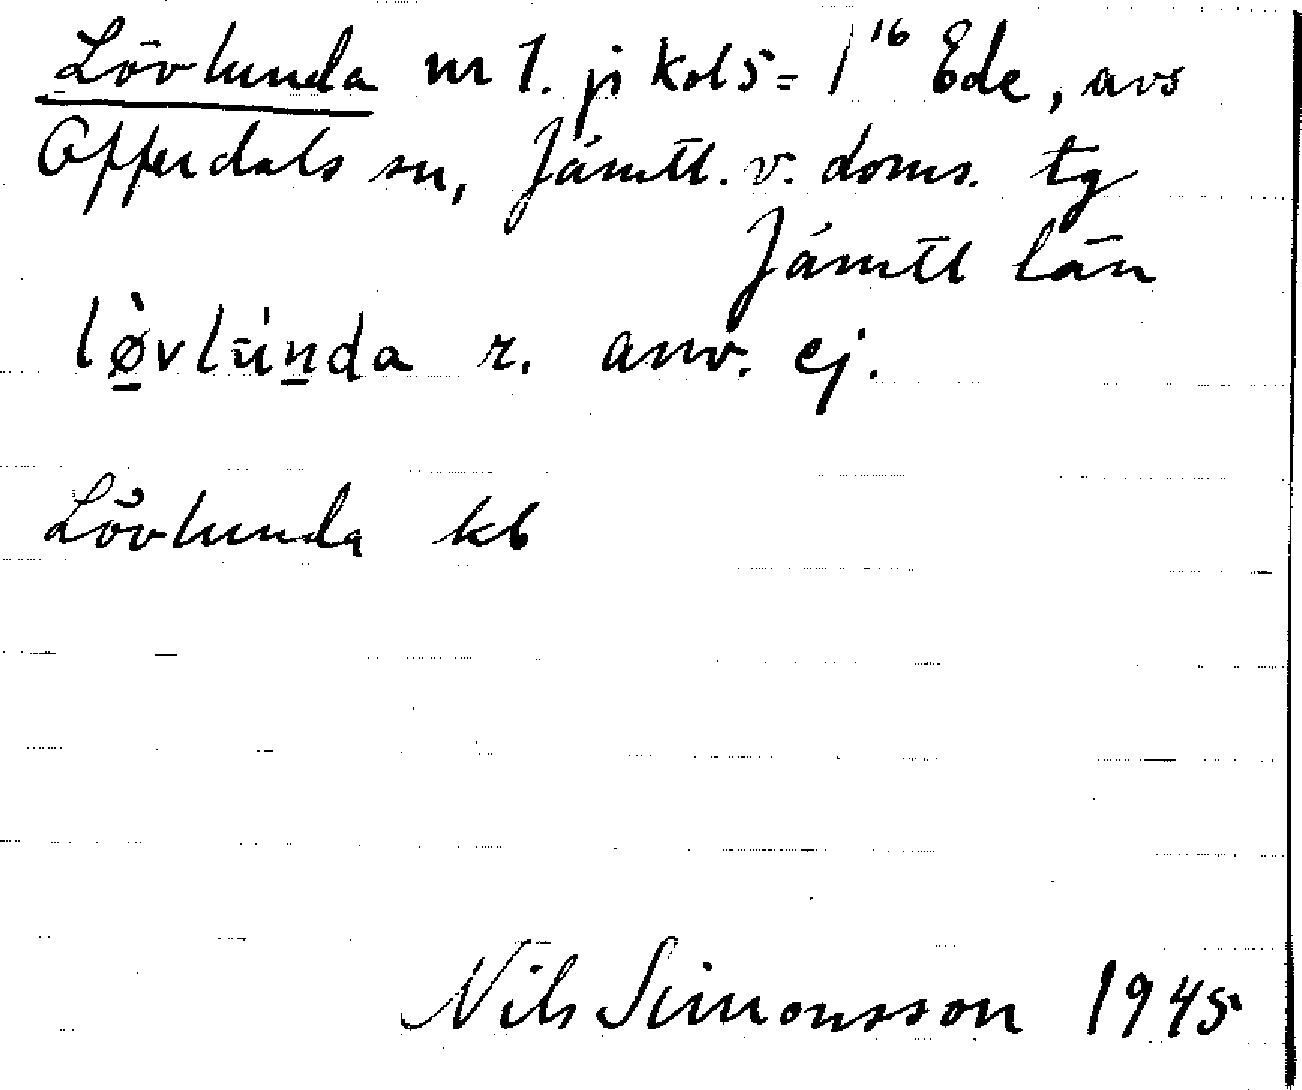 Lövlunda nr 1. ji kol 5 = 1¹⁶ Ede, avs
Offerdals sn, Jämtl. v. doms. tg
Jämtl län
lø̀vlúnda r. anv. ej.
Lövlunda kb
Nils Simonsson 1945